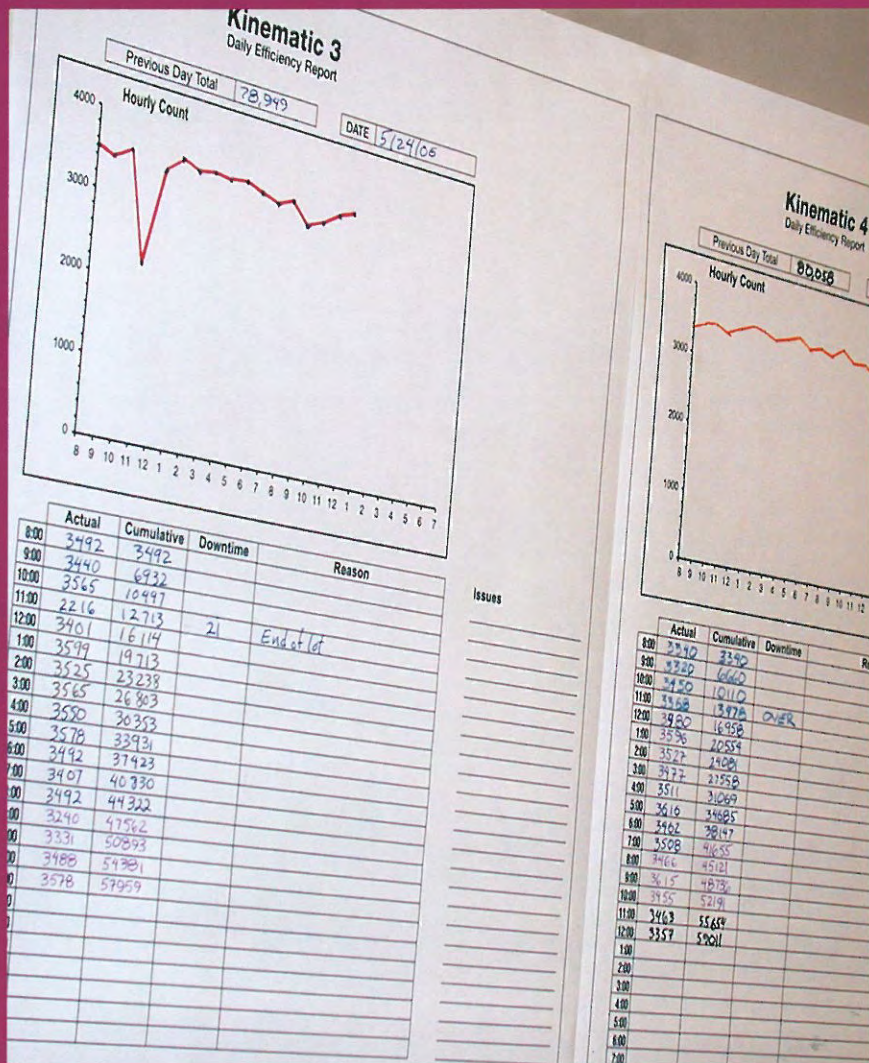 Kinematic 3
Daily Efficiency Report
Previous Day Total 78,949
DATE 5/24/06
Hourly Count
4000
3000
2000
1000
0
8 9 10 11 12 1 2 3 4 5 6 7 8 9 10 11 12 1 2 3 4 5 6 7
Actual Cumulative Downtime Reason
8:00 3492 3492
9:00 3440 6932
10:00 3565 10497
11:00 2216 12713 21 End of lot
12:00 3401 16114
1:00 3599 19713
2:00 3525 23238
3:00 3565 26803
4:00 3550 30353
5:00 3578 33931
6:00 3492 37423
7:00 3407 40830
:00 3492 44322
:00 3240 47562
:00 3331 50893
:00 3488 54381
3578 57959
Issues
Kinematic 4
Daily Efficiency Report
Previous Day Total 80,058
Hourly Count
4000
3000
2000
1000
0
8 9 10 11 12 1 2 3 4 5 6 7 8 9 10 11 12
Actual Cumulative Downtime
8:00 3340 3340
9:00 3320 6660
10:00 3450 10110
11:00 3368 13478 OVER
12:00 3480 16958
1:00 3596 20554
2:00 3527 24081
3:00 3477 27558
4:00 3511 31069
5:00 3616 34685
6:00 3462 38147
7:00 3508 41655
8:00 3466 45121
9:00 3615 48736
10:00 3455 52191
11:00 3463 55654
12:00 3357 59011
1:00
2:00
3:00
4:00
5:00
6:00
7:00